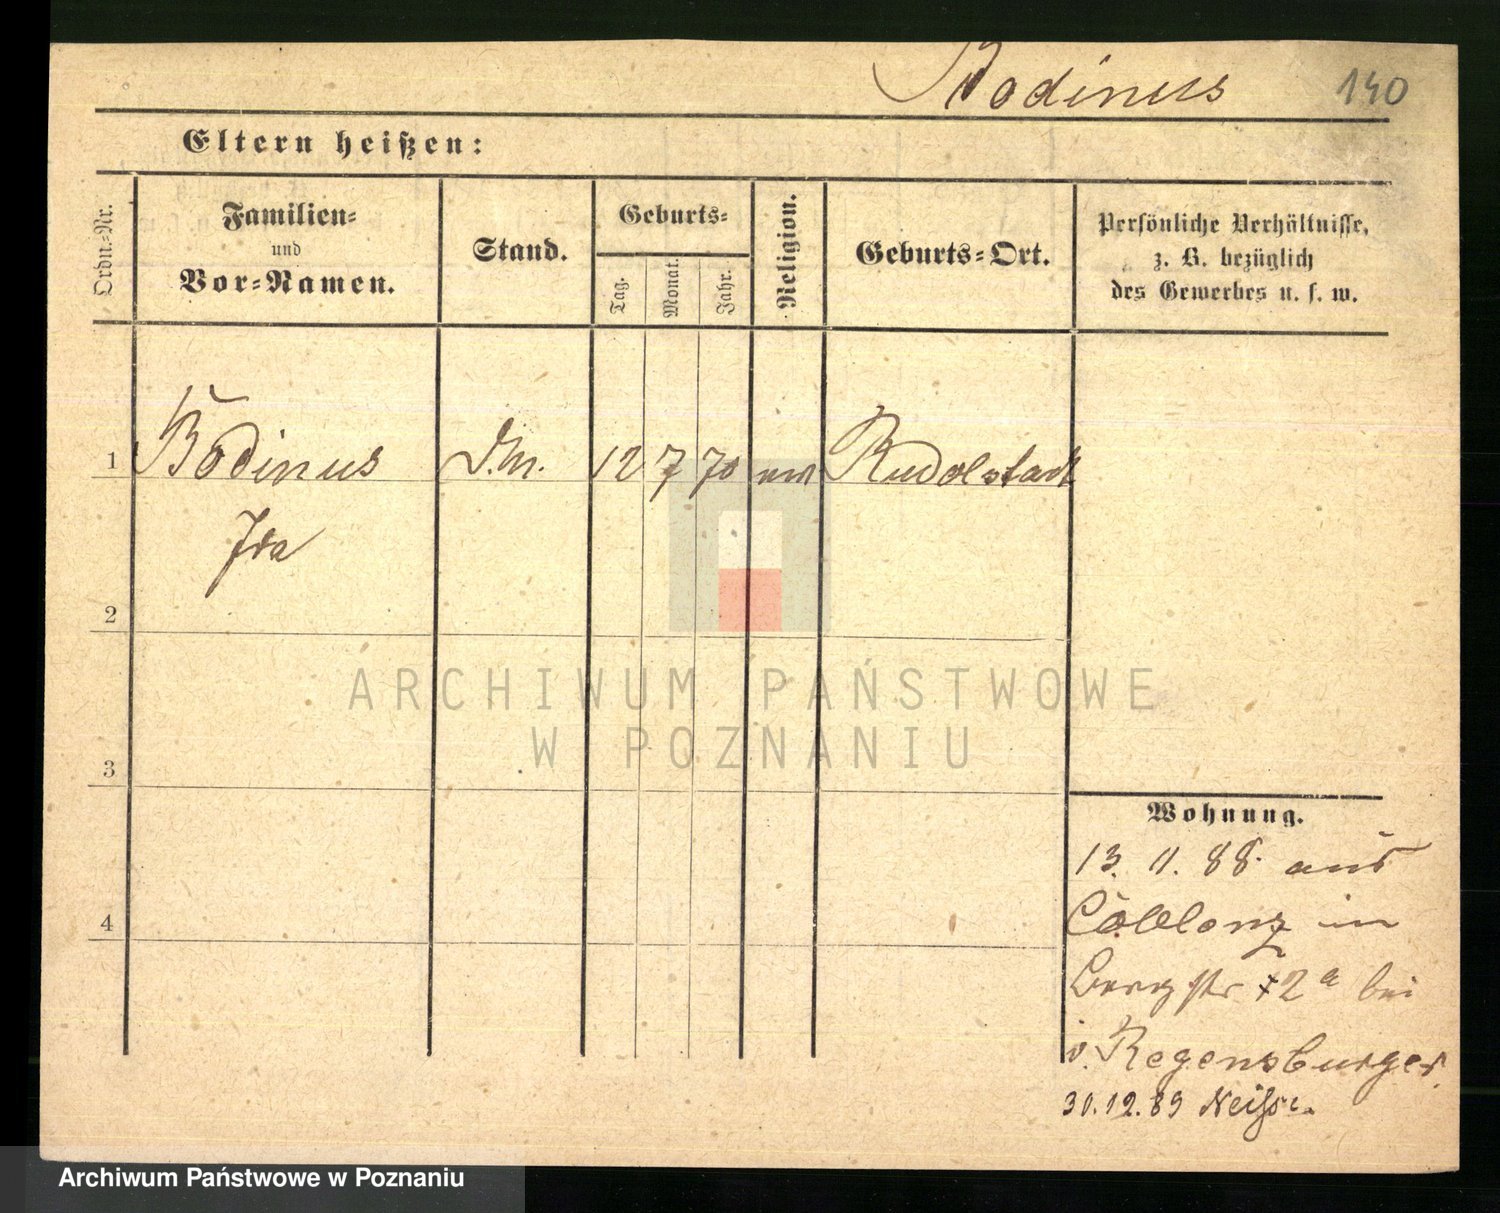 Bodinus 140
Eltern heißen:
Ordn.-Nr.
Familien-
und
Vor-Namen.
Stand.
Geburts-
Tag.
Monat.
Jahr.
Religion.
Geburts-Ort.
Persönliche Verhältnisse,
z. B. bezüglich
des Gewerbes u. s. w.
1 Bodinus 12 7 70 Rudolstadt
Ida
2
3
4
Wohnung.
13. 11. 88. aus
Coblenz in
Bergstr 12a bei
v. Regensburger
30.12.89 Neisse.
ARCHIWUM PAŃSTWOWE
W POZNANIU
Archiwum Państwowe w Poznaniu